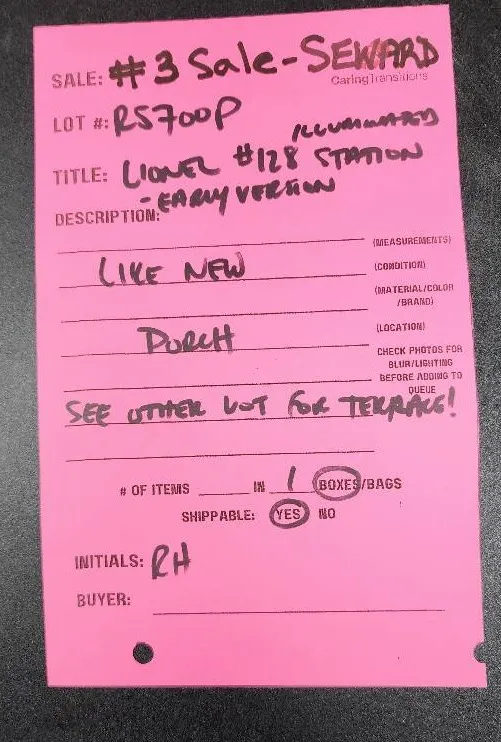 SALE: #3 Sale - SEWARD
CaringTransitions
LOT #: RS700P
ILLUMINATED
TITLE: LIONEL #128 STATION
- EARLY VERSION
DESCRIPTION:
(MEASUREMENTS)
LIKE NEW (CONDITION)
(MATERIAL/COLOR
/BRAND)
PORCH (LOCATION)
CHECK PHOTOS FOR
BLUR/LIGHTING
BEFORE ADDING TO
QUEUE
SEE OTHER LOT FOR TERRACE!
# OF ITEMS ____ IN 1 BOXES/BAGS
SHIPPABLE: YES NO
INITIALS: RH
BUYER: